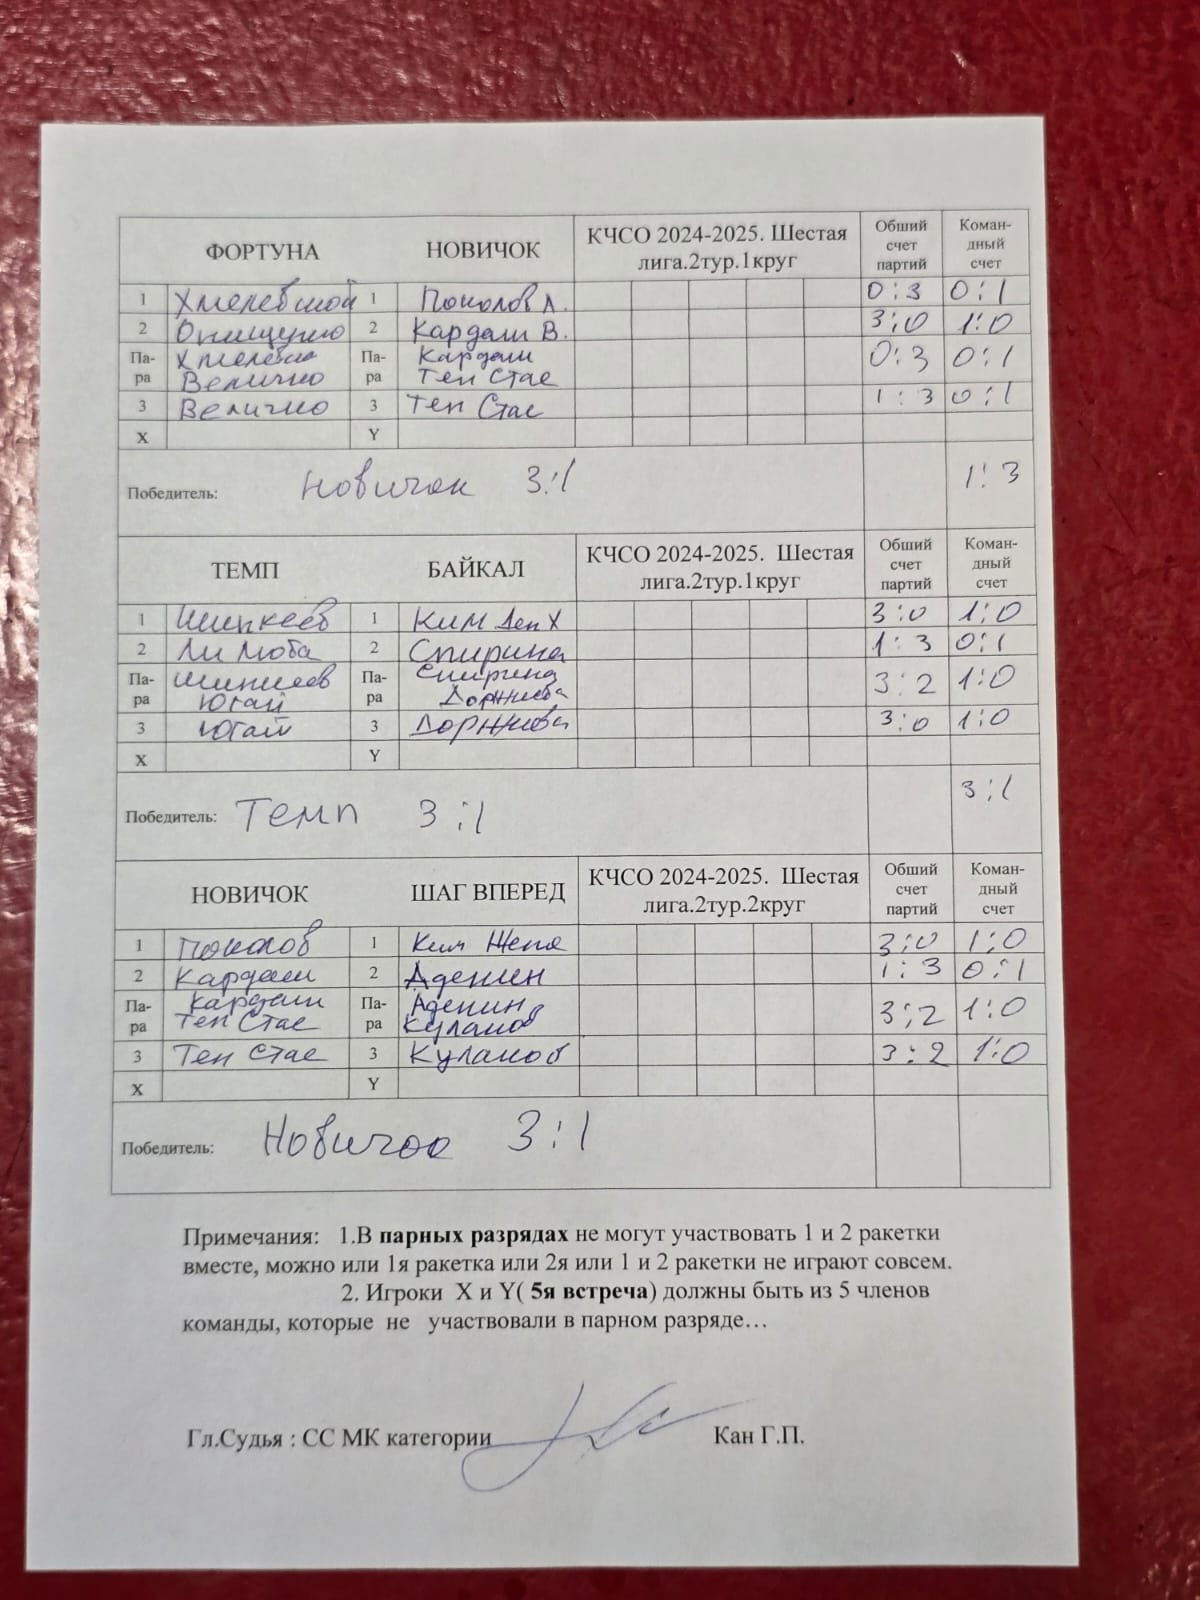 ФОРТУНА НОВИЧОК КЧСО 2024-2025. Шестая лига.2тур.1круг Обший счет партий Коман-дный счет
1 Хмелевской 1 Поколов А. 0:3 0:1
2 Онищенко 2 Кардаш В. 3:0 1:0
Па-ра Па-ра Кардаш 0:3 0:1
Величко Тен Стас
3 Величко 3 Тен Стас 1:3 0:1
X Y
Победитель: Новичок 3:1 1:3
ТЕМП БАЙКАЛ КЧСО 2024-2025. Шестая лига.2тур.1круг Обший счет партий Коман-дный счет
1 Шипкеев 1 Ким Ден Х 3:0 1:0
2 Ли Люба 2 Спирина 1:3 0:1
Па-ра Па-ра Спирина 3:2 1:0
Югай Доржиева
3 Югай 3 Доржиева 3:0 1:0
X Y
3:1
Победитель: Темп 3:1
НОВИЧОК ШАГ ВПЕРЕД КЧСО 2024-2025. Шестая лига.2тур.2круг Обший счет партий Коман-дный счет
1 Поколов 1 Ким Женя 3:0 1:0
2 Кардаш 2 Аденин 1:3 0:1
Па-ра Кардаш Па-ра Аденин 3:2 1:0
Тен Стас Куланов
3 Тен Стас 3 Куланов 3:2 1:0
X Y
Победитель: Новичок 3:1
Примечания: 1.В парных разрядах не могут участвовать 1 и 2 ракетки
вместе, можно или 1я ракетка или 2я или 1 и 2 ракетки не играют совсем.
2. Игроки X и Y( 5я встреча) должны быть из 5 членов
команды, которые не участвовали в парном разряде…
Гл.Судья : СС МК категории Кан Г.П.